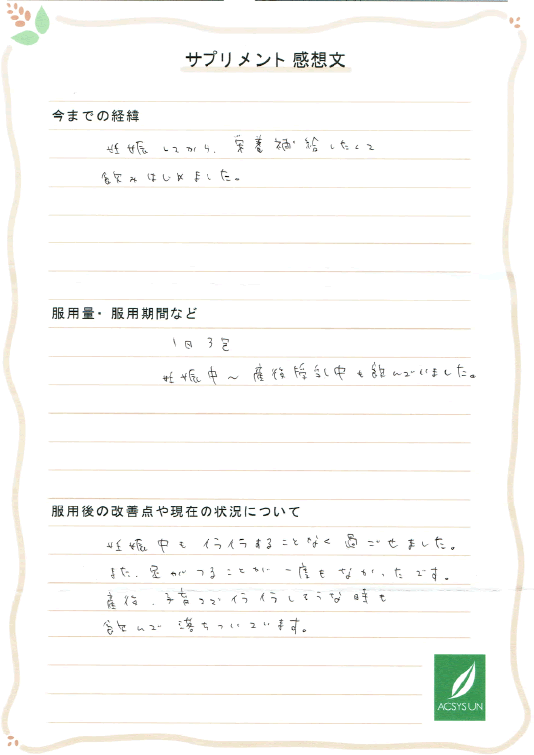 サプリメント 感想文
今までの経緯
妊娠してから、栄養補給したくて
飲みはじめました。
服用量・服用期間など
1回3包
妊娠中～産後授乳中も飲んでいました。
服用後の改善点や現在の状況について
妊娠中もイライラすることなく過ごせました。
また、足がつることが一度もなかったです。
産後、子育てでイライラしそうな時も
飲んで落ちついています。
ACSYSUN